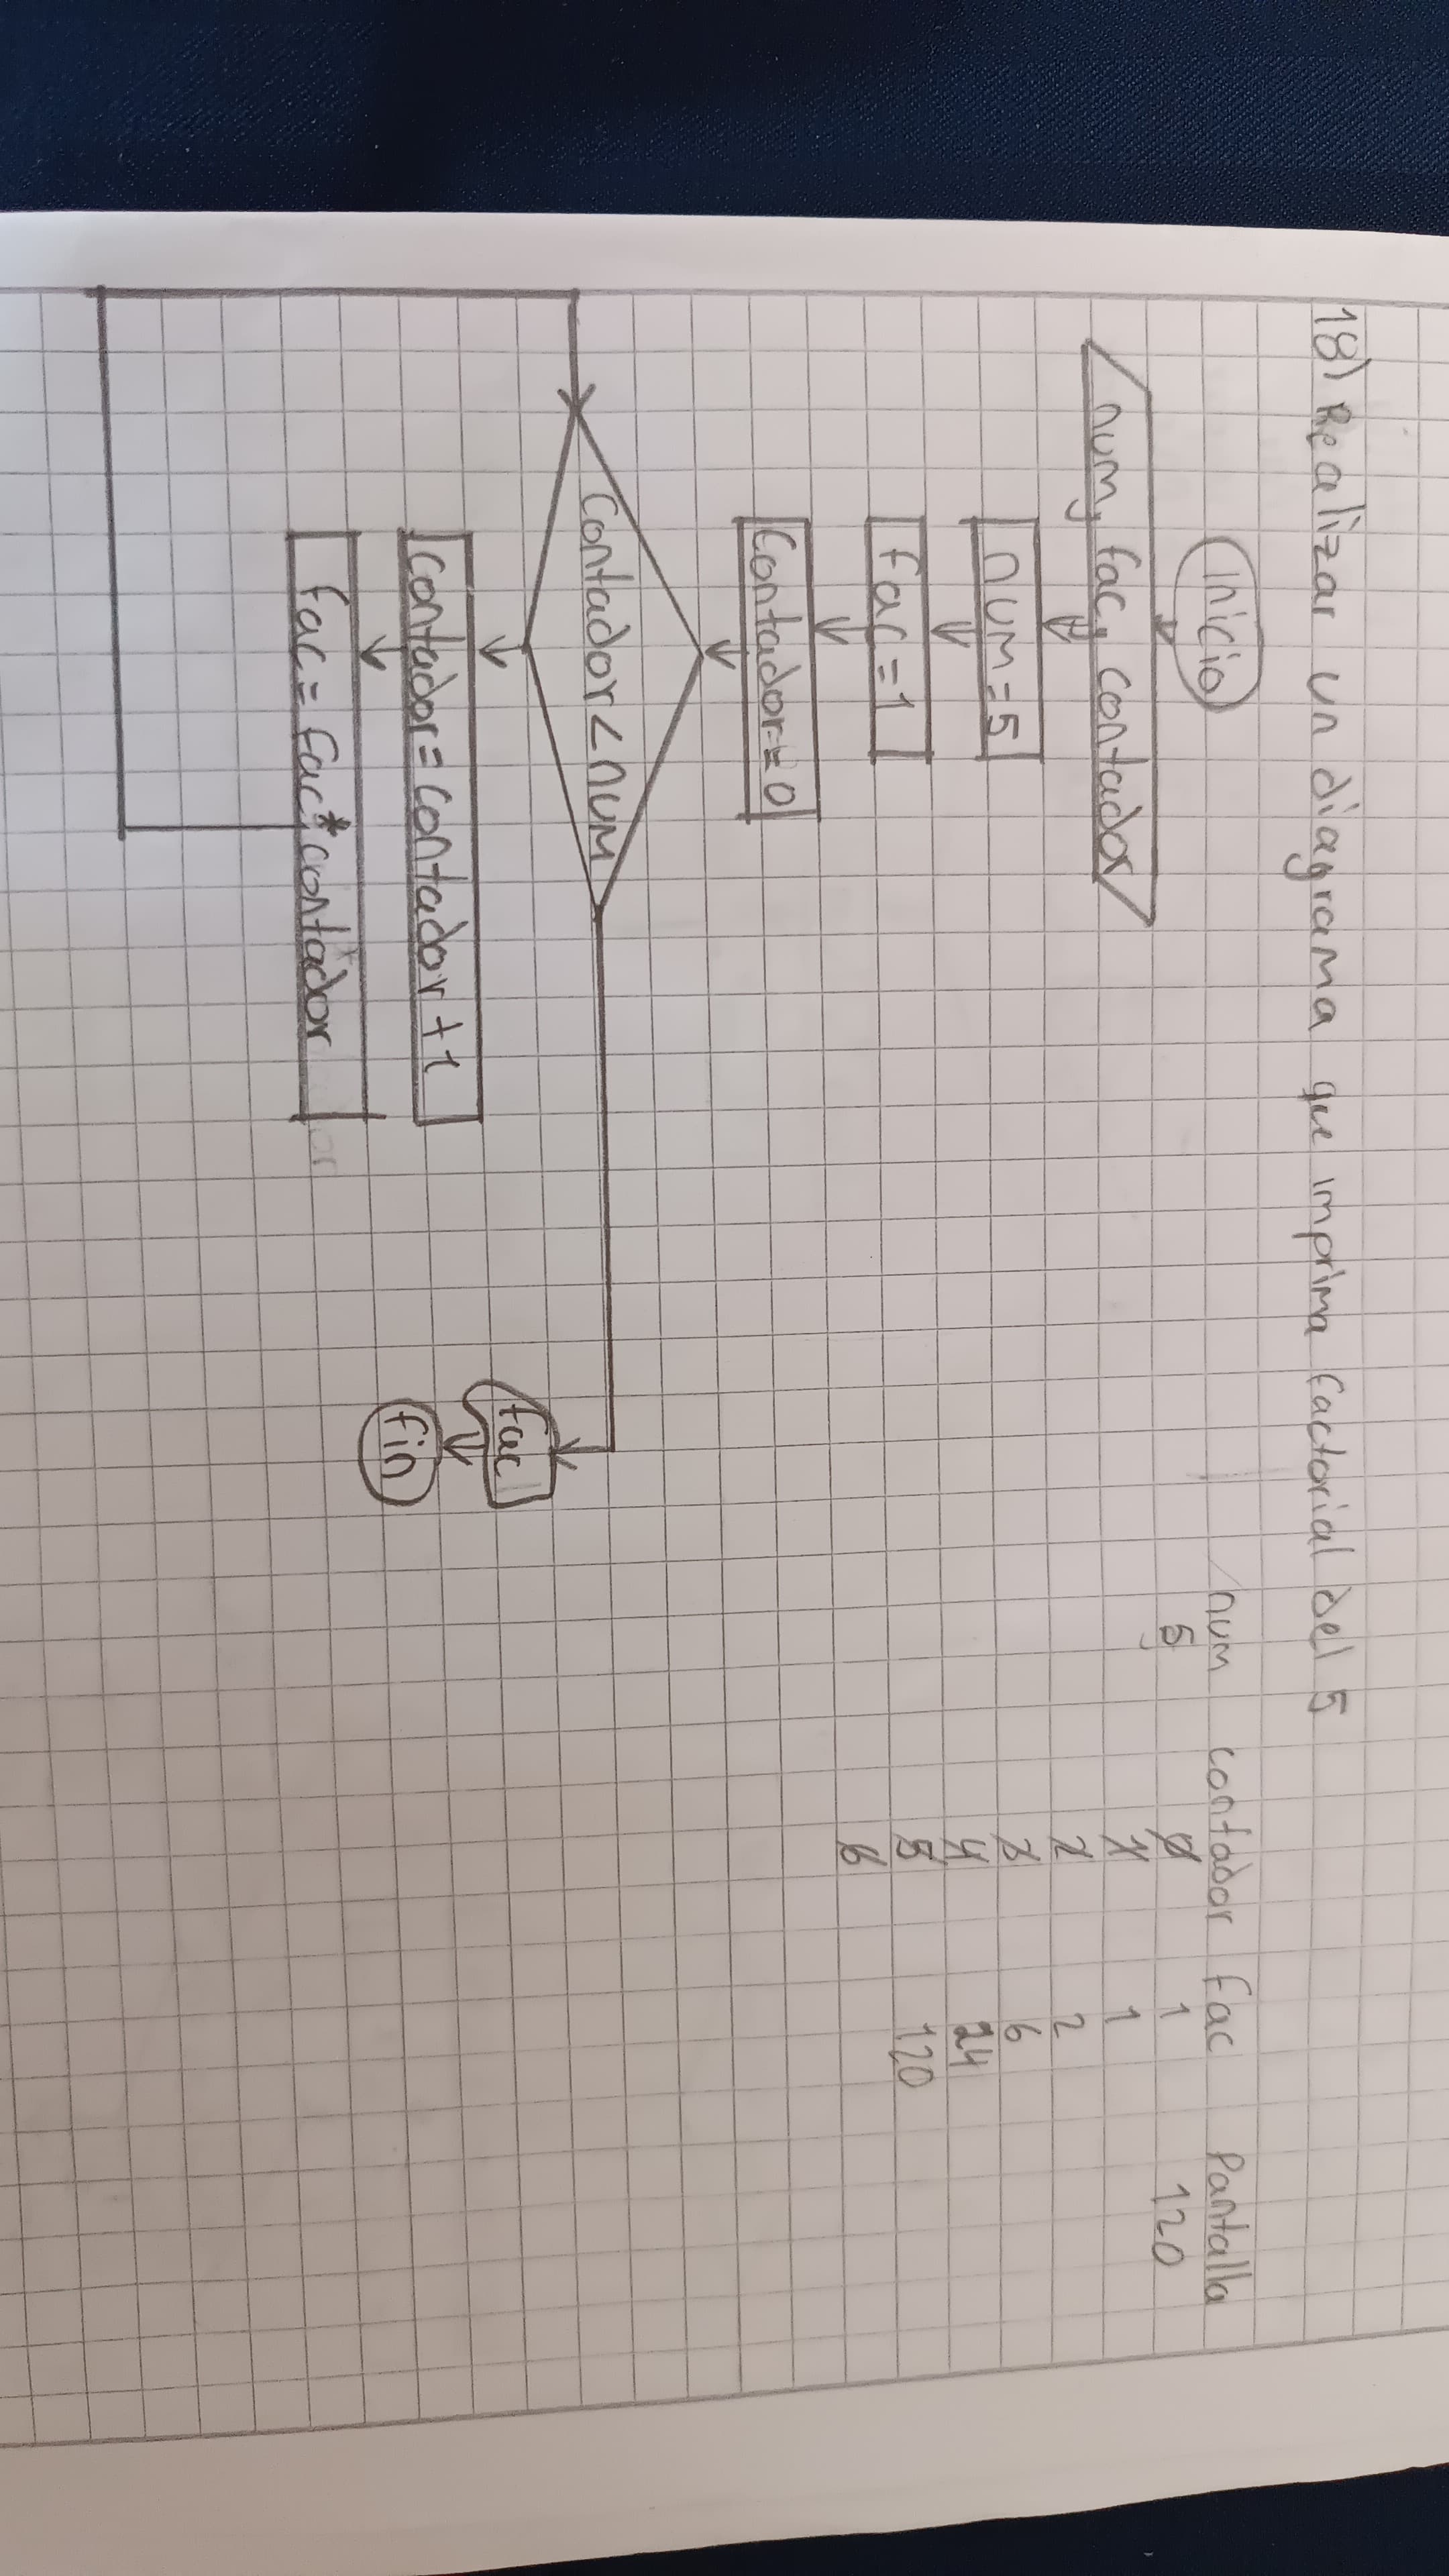 18) Realizar un diagrama que imprima factorial del 5
inicio
num, fac, contador
num=5
fac=1
Contador=0
Contador<num
contador=contador+1
fac=fac*contador
fac
fin
num contador fac Pantalla
5 0 1 120
1 1
2 2
3 6
4 24
5 120
6